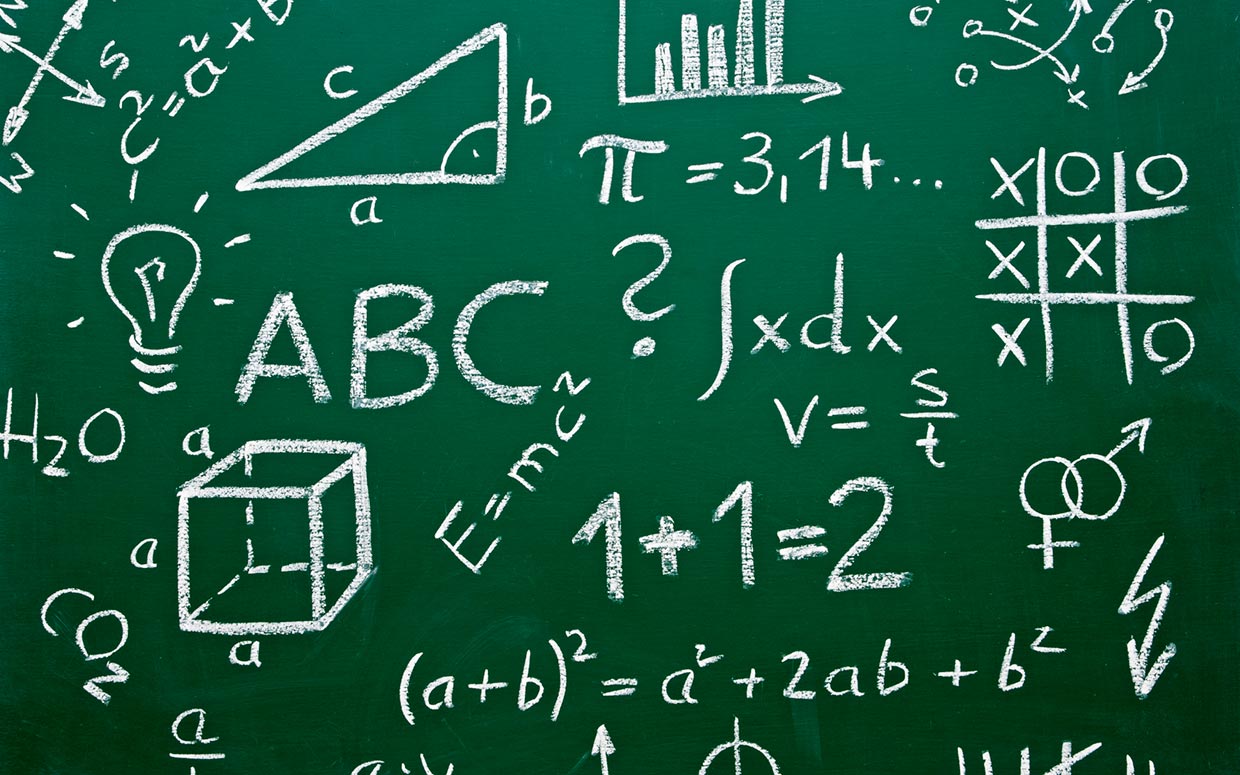 S
W
c² = a² x
c
b
a
π = 3,14...
X O O
X X
X O
?
∫xdx
ABC
v = s/t
H₂O
a
a
a
E = mc²
1+1=2
CO₂
(a+b)² = a² + 2ab + b²
a